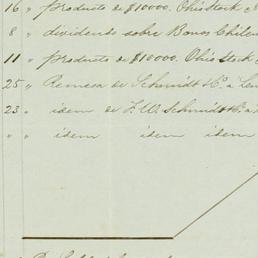 16 " producto de $10000. Ohio Stock
8 " dividendo sobre Bonos Chilen
11 " producto de $10000. Ohio Stock
25 " Remesa de Schmidt & Co. a
23 " idem de F. W. Schmidt & Co. a
" " idem idem idem